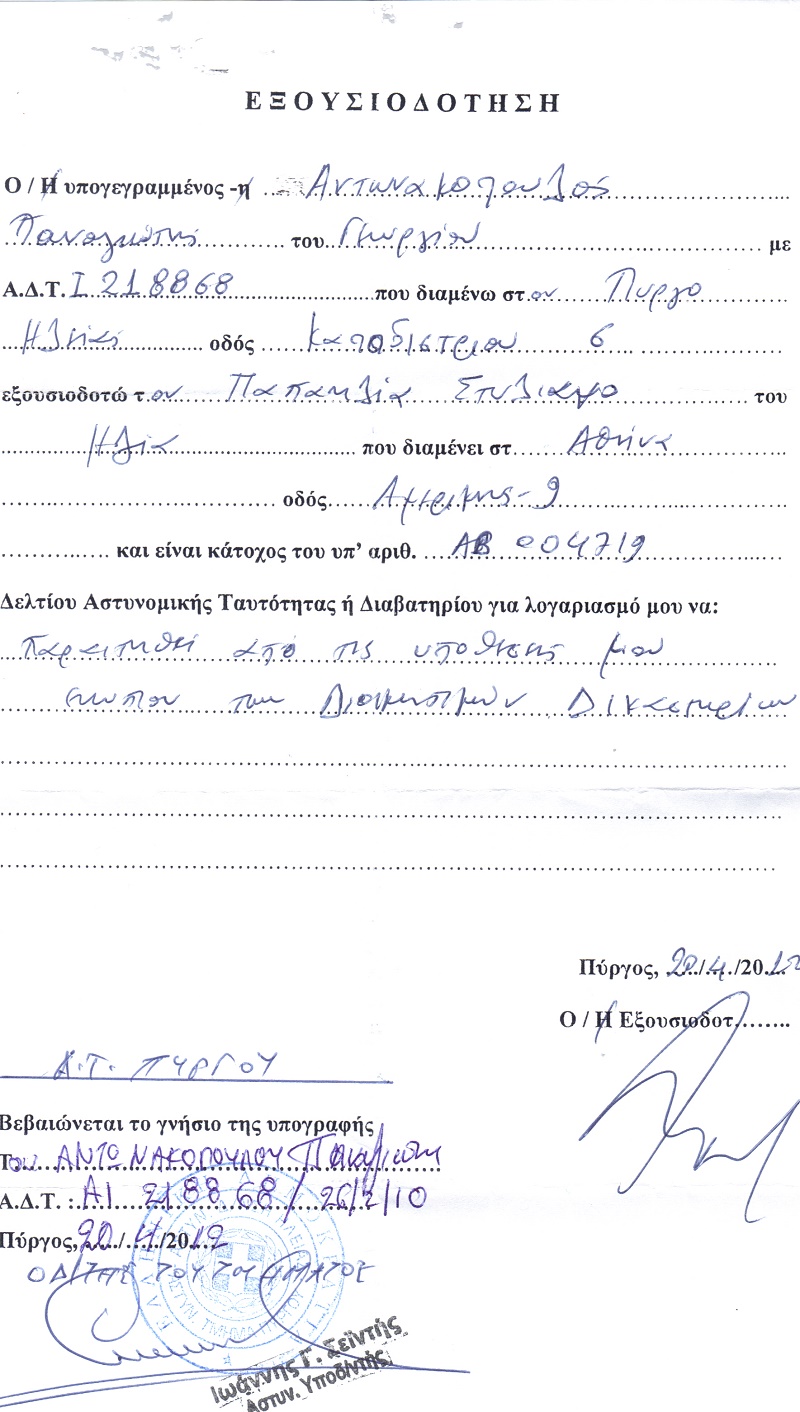 ΕΞΟΥΣΙΟΔΟΤΗΣΗ
Ο / Η υπογεγραμμένος -η Αντωνακοπουλος
Παναγιώτης του Γεωργίου με
Α.Δ.Τ. Ι 218868 που διαμένω στον Πυργο
Ηλείας οδός Καποδιστριου 6
εξουσιοδοτώ τον Παπαηλία Στυλιανο του
Ηλία που διαμένει στ Αθήνα
οδός - 9
και είναι κάτοχος του υπ' αριθ. ΑΒ 004719
Δελτίου Αστυνομικής Ταυτότητας ή Διαβατηρίου για λογαριασμό μου να:
παραιτηθεί από τις υποθεσεις μου
ενωπιον των Διοικητικών Δικαστηρίων
Πύργος, 20/4/2012
Ο / Η Εξουσιοδοτ
Α.Τ. ΠΥΡΓΟΥ
Βεβαιώνεται το γνήσιο της υπογραφής
Του ΑΝΤΩΝΑΚΟΠΟΥΛΟΥ Παναγιώτη
Α.Δ.Τ. : ΑΙ 218868 / 26/2/10
Πύργος, 20/4/2012
Ο Δ/ΤΗΣ ΤΟΥ ΤΜΗΜΑΤΟΣ
Ιωάννης Γ. Σεϊντής
Αστυν. Υποδ/ντής